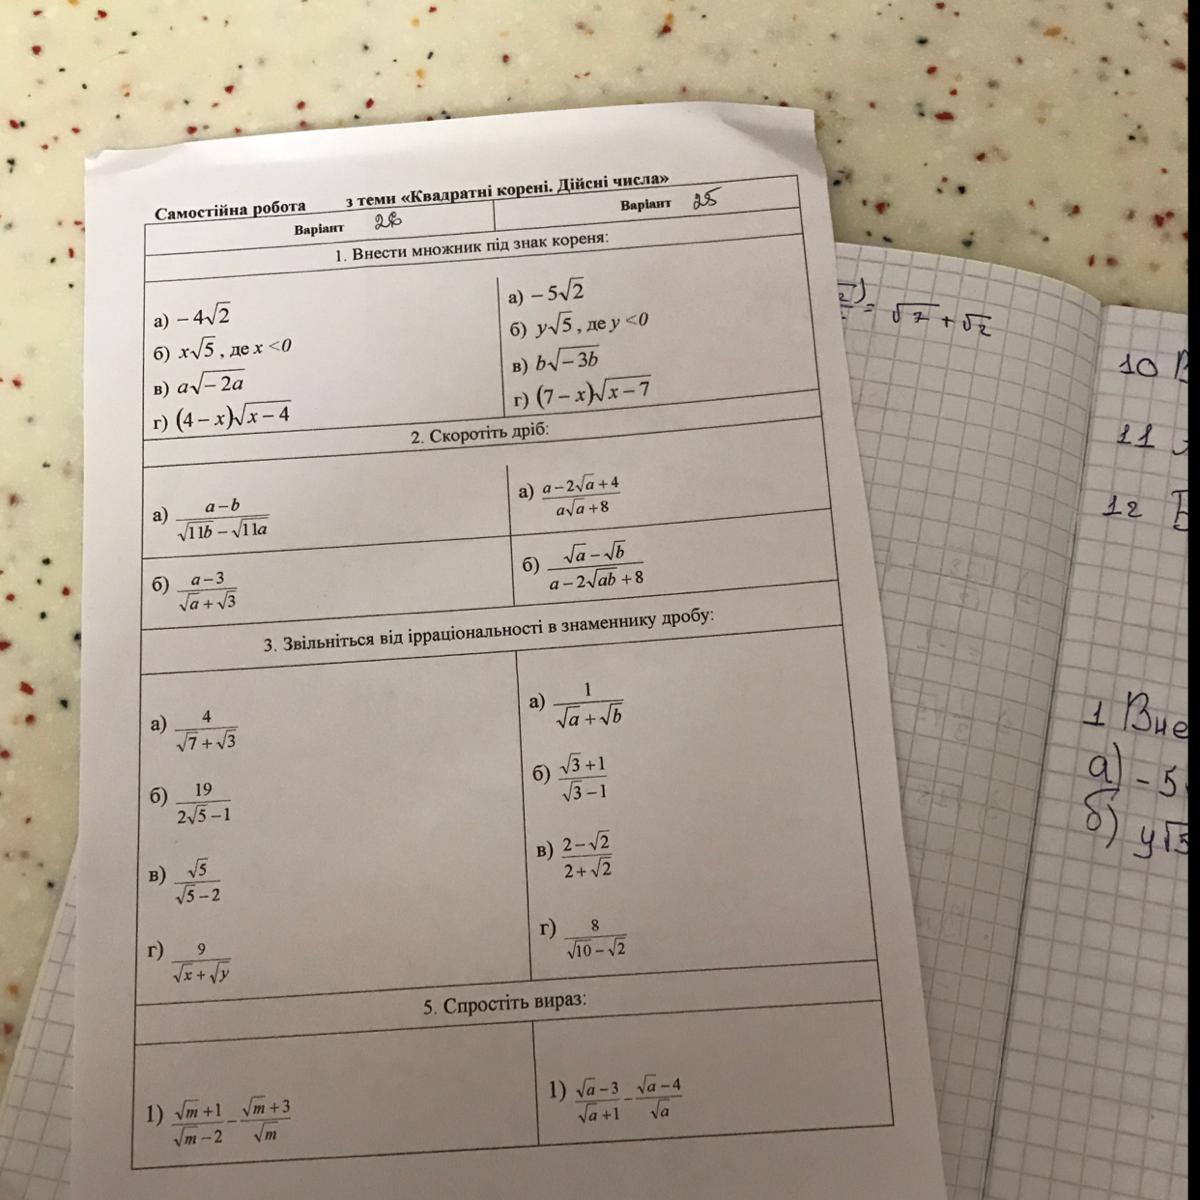 Самостійна робота з теми «Квадратні корені. Дійсні числа»
Варіант 26
Варіант 25
1. Внести множник під знак кореня:
а) – 4√2
б) x√5 , де x <0
в) a√(– 2a)
г) (4 – x)√(x – 4)
а) – 5√2
б) y√5 , де y <0
в) b√(– 3b)
г) (7 – x)√(x – 7)
2. Скоротіть дріб:
а) (a – b)/(√11b – √11a)
а) (a – 2√a + 4)/(a√a + 8)
б) (a – 3)/(√a + √3)
б) (√a – √b)/(a – 2√ab + 8)
3. Звільніться від ірраціональності в знаменнику дробу:
а) 4/(√7 + √3)
б) 19/(2√5 – 1)
в) √5/(√5 – 2)
г) 9/(√x + √y)
а) 1/(√a + √b)
б) (√3 + 1)/(√3 – 1)
в) (2 – √2)/(2 + √2)
г) 8/(√10 – √2)
5. Спростіть вираз:
1) (√m + 1)/(√m – 2) – (√m + 3)/√m
1) (√a – 3)/(√a + 1) – (√a – 4)/√a
= √7 + √2
10 В
11
12
1 Вне
а) - 5
б) y√5